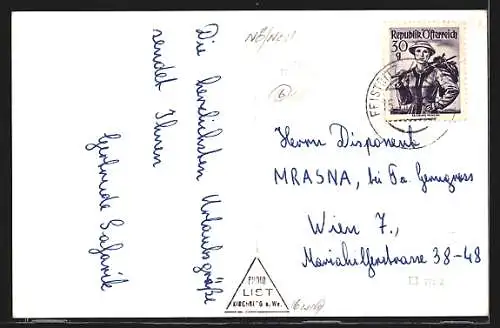 Die herzlichsten Urlaubsgrüße
sendet Ihnen
Gertrude Safarik
NÖ/NEU
Republik Österreich
30
g
FEISTRITZ
Herrn Disponent
MRASNA, bei Fa. Gerngross
Wien 7.,
Mariahilferstrasse 38-48
PHOTO
LIST
KIRCHBERG a. We.